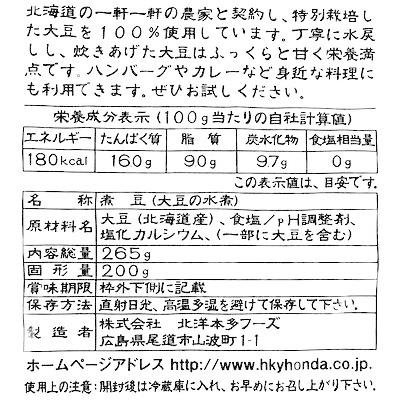 北海道の一軒一軒の農家と契約し、特別栽培し
た大豆を１００％使用しています。丁寧に水戻
しし、炊きあげた大豆はふっくらと甘く栄養満
点です。ハンバーグやカレーなど身近な料理に
も利用できます。ぜひお試しください。
栄養成分表示(100g当たりの自社計算値)
エネルギー たんぱく質 脂 質 炭水化物 食塩相当量
180kcal 160g 90g 9.7g 0g
この表示値は、目安です。
名 称 煮 豆 (大豆の水煮)
原材料名 大豆(北海道産)、食塩/pH調整剤、
塩化カルシウム、(一部に大豆を含む)
内容総量 265g
固形量 200g
賞味期限 枠外下側に記載
保存方法 直射日光、高温多湿を避けて保存して下さい。
製造者 株式会社 北洋本多フーズ
広島県尾道市山波町1-1
ホームページアドレス http://www.hkyhonda.co.jp.
使用上の注意：開封後は冷蔵庫に入れ、お早めにお召し上がり下さい。